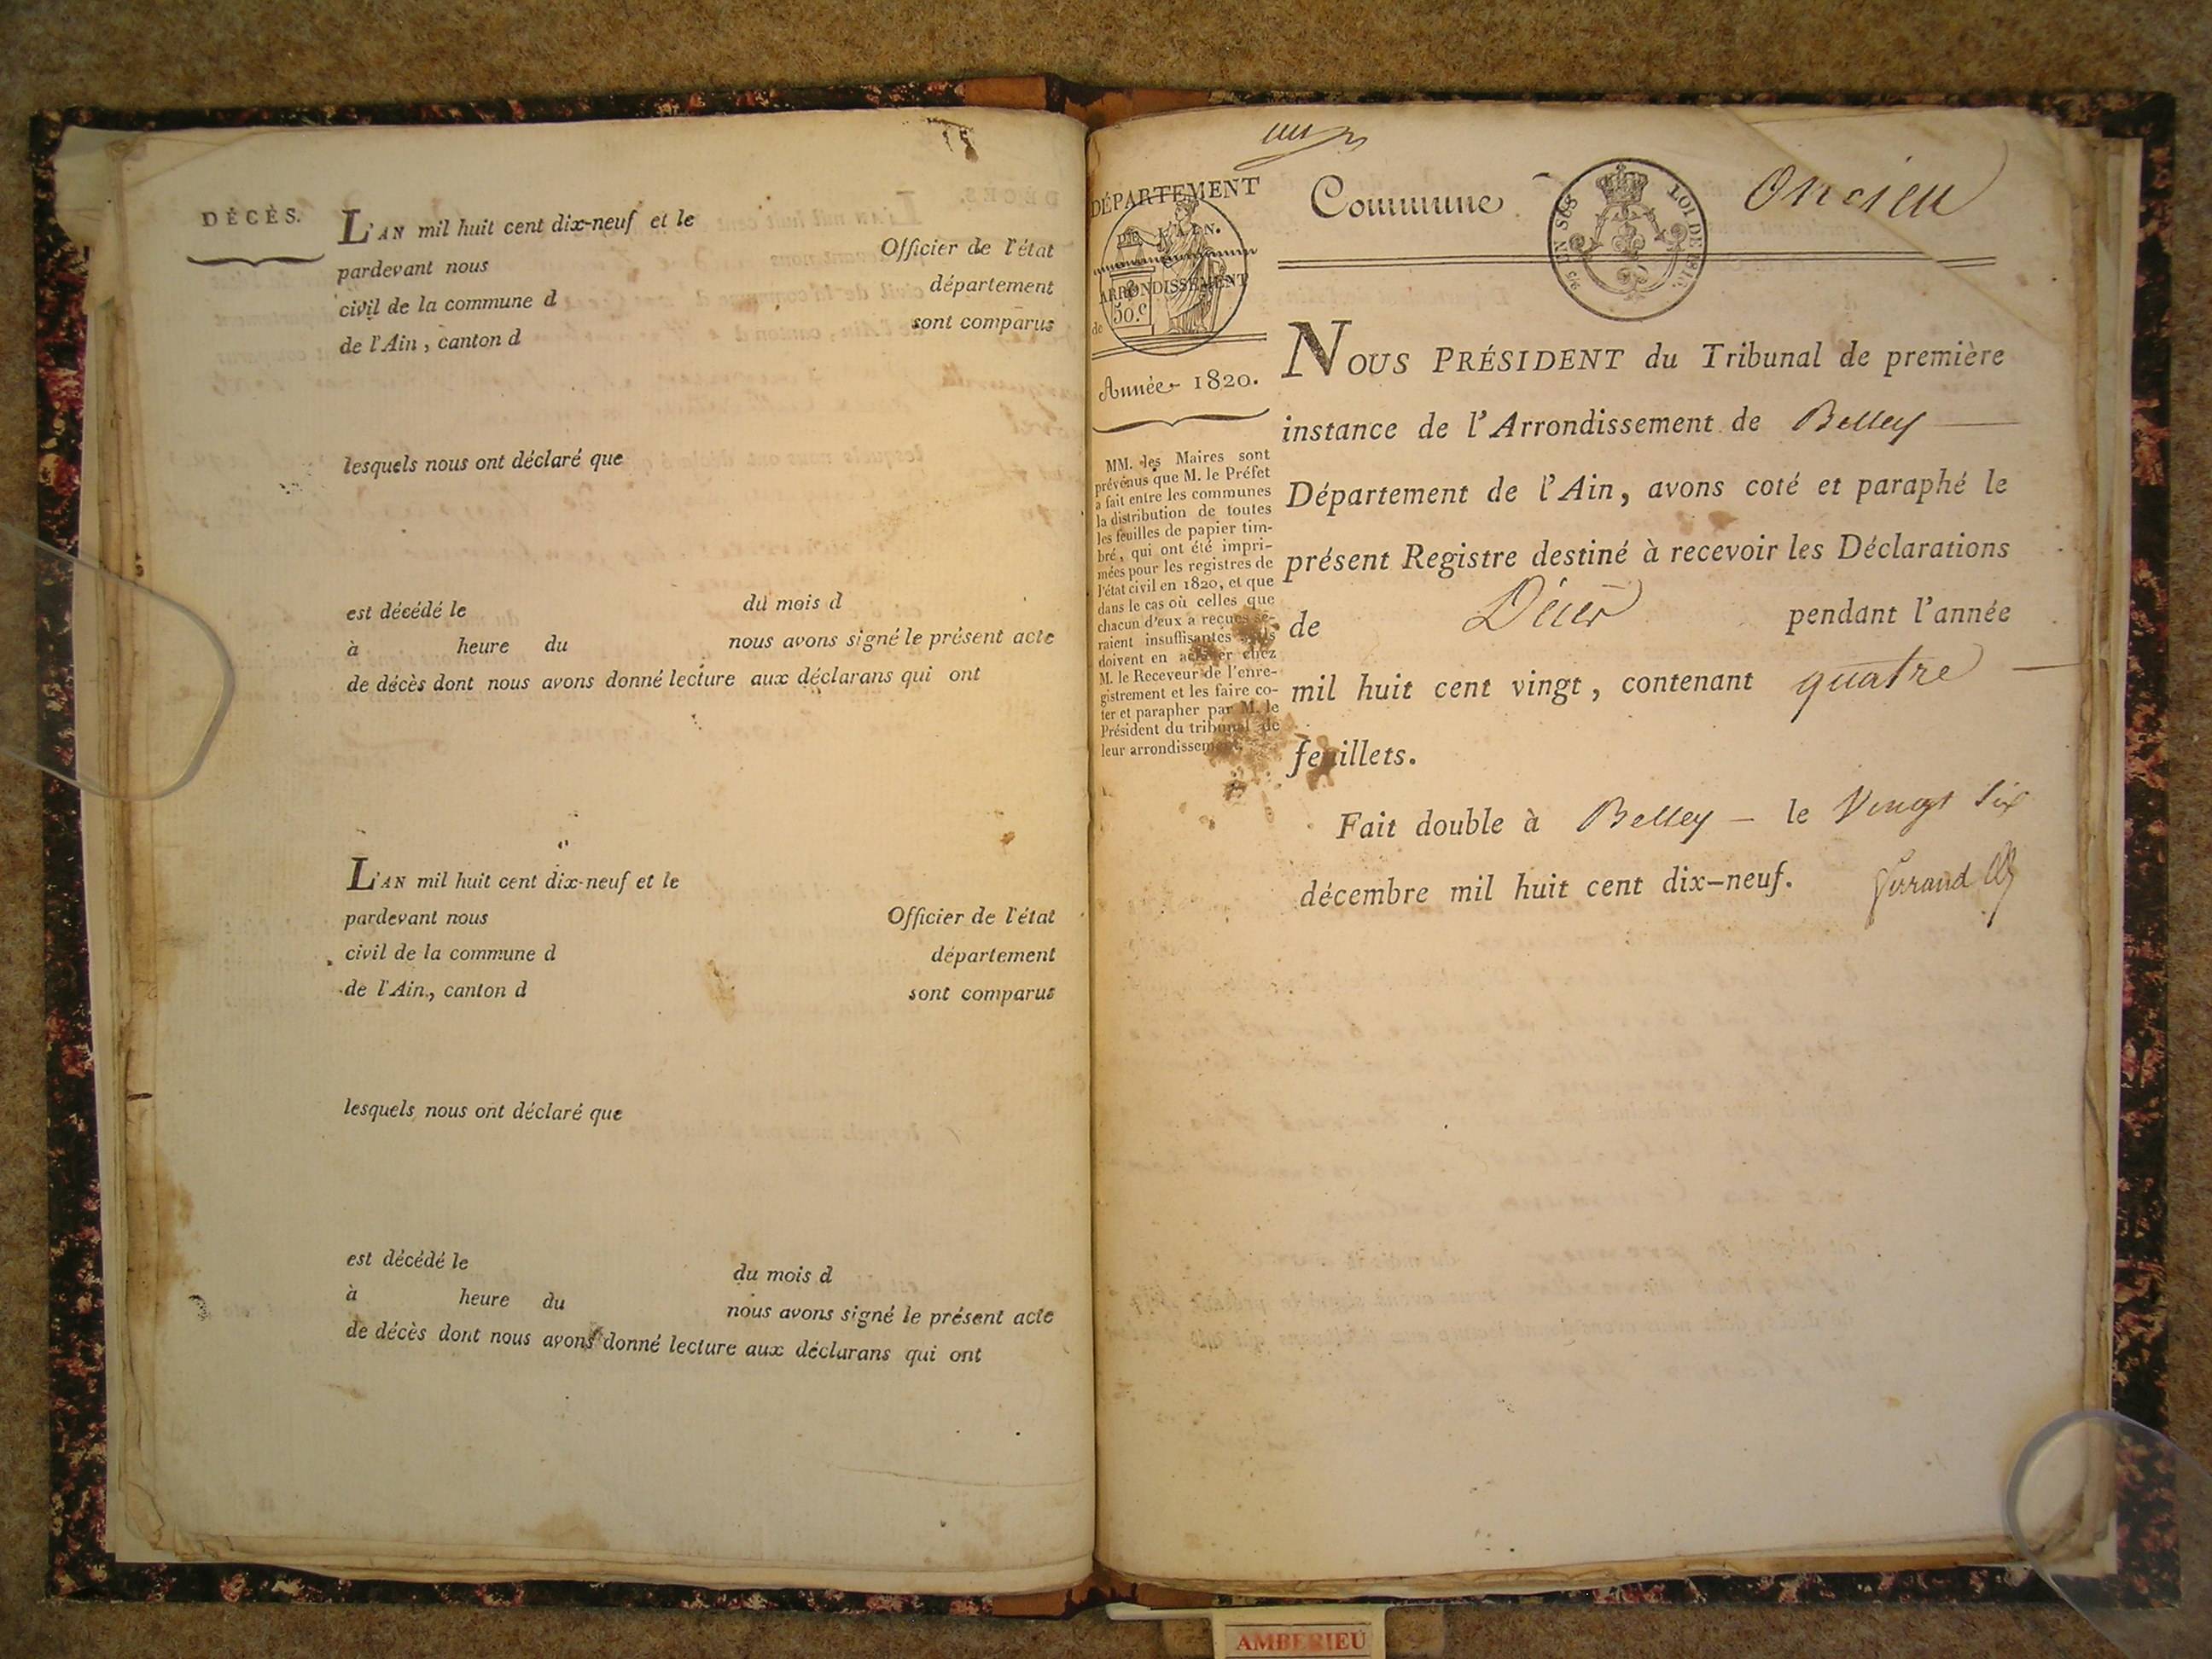 DÉCÈS.
L'AN mil huit cent dix-neuf et le
pardevant nous Officier de l'état
civil de la commune d département
de l'Ain, canton d sont comparus
lesquels nous ont déclaré que
est décédé le du mois d
à heure du nous avons signé le présent acte
de décès dont nous avons donné lecture aux déclarans qui ont
L'AN mil huit cent dix-neuf et le
pardevant nous Officier de l'état
civil de la commune d département
de l'Ain, canton d sont comparus
lesquels nous ont déclaré que
est décédé le du mois d
à heure du nous avons signé le présent acte
de décès dont nous avons donné lecture aux déclarans qui ont
DÉPARTEMENT
DE L'AIN.
ARRONDISSEMENT
50.c
de
Année 1820.
MM. les Maires sont
prévenus que M. le Préfet
a fait entre les communes
la distribution de toutes
les feuilles de papier tim-
bré, qui ont été impri-
mées pour les registres de
l'état civil en 1820, et que
dans le cas où celles que
chacun d'eux a reçues se-
raient insuffisantes ils
doivent en acheter chez
M. le Receveur de l'enre-
gistrement et les faire co-
ter et parapher par M. le
Président du tribunal de
leur arrondissement.
Commune Oncieu
EN SUS LOI DE
NOUS PRÉSIDENT du Tribunal de première
instance de l'Arrondissement de Belley
Département de l'Ain, avons coté et paraphé le
présent Registre destiné à recevoir les Déclarations
de Décès pendant l'année
mil huit cent vingt, contenant quatre
feuillets.
Fait double à Belley le Vingt Six
décembre mil huit cent dix-neuf.
AMBERIEU